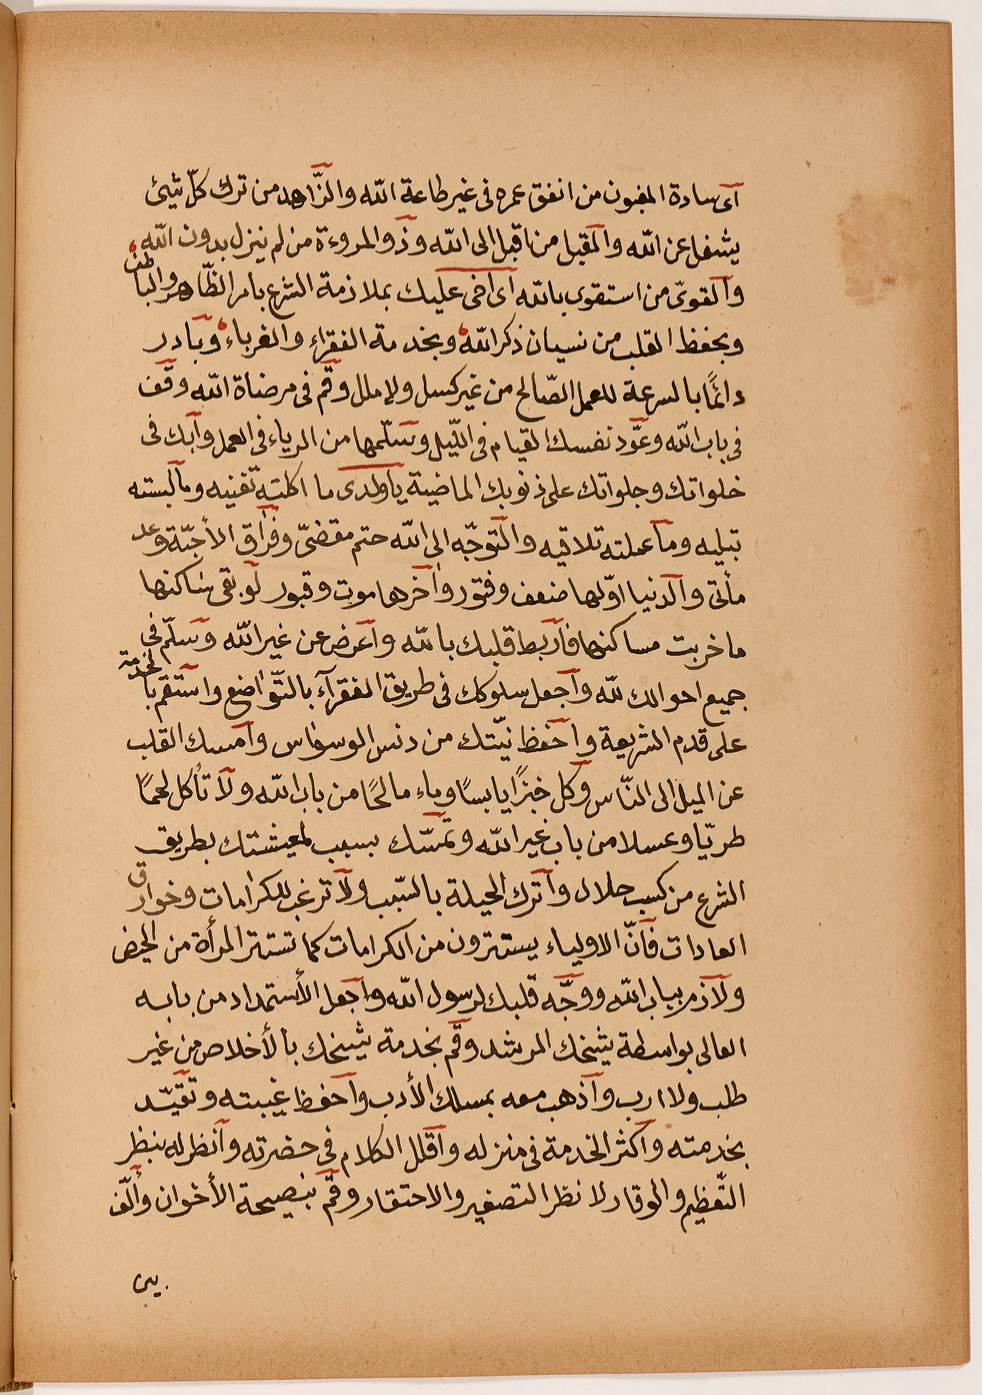 آى سادة المغبون من انفق عمره فى غير طاعة الله والزّاهد من ترك كلّ شيئ
يشغل عن الله والمقبل من اقبل الى الله وذو المروءة من لم ينزل بدون الله
والقوىّ من استقوى بالله اى اخى عليك بملازمة الشرع بامر الظّاهر والباطن
وبحفظ القلب من نسيان ذكر الله وبخدمة الفقراء والغرباء وبادر
دائمًا بالسرعة للعمل الصّالح من غير كسل ولا ملل وقم فى مرضاة الله وقف
فى باب الله وعوّد نفسك القيام فى اللّيل وسلّمها من الرياء فى العمل وابك فى
خلواتك وجلواتك على ذنوبك الماضية ياولدى ما اكلته تفنيه وما لبسته
تبليه وما عملته تلاقيه والتوجّه الى الله حتم مقضىّ وفراق الأحبّة وعد
مأتى والدنيا اوّلها ضعف وفتور واخرها موت وقبور لو بقى ساكنها
ما خربت مساكنها فاربط قلبك بالله واعرض عن غير الله وسلّم فى
جميع احوالك لله واجعل سلوكك فى طريق الفقرآء بالتّواضع واستقم بالخدمة
على قدم الشريعة واحفظ نيّتك من دنس الوسواس وامسك القلب
عن الميل الى النّاس وكل خبزًا يابسًا وماء مالحًا من باب الله ولا تأكل لحمًا
طريّا وعسلا من باب غير الله وتمسّك بسبب لمعيشتك بطريق
الشرع من كسب حلال واترك الحيلة بالسّبب ولا ترغب للكرامات وخوارق
العادات فانّ الاولياء يستترون من الكرامات كما تستتر المرأة من الحيض
ولازم بباب الله ووجّه قلبك لرسول الله واجعل الأستمداد من بابه
العالى بواسطة شيخك المرشد وقم بخدمة شيخك بالأخلاص من غير
طلب ولا ارب واذهب معه بمسلك الأدب واحفظ غيبته وتقيّد
بخدمته واكثر الخدمة فى منزله واقلل الكلام فى حضرته وانظر له بنظر
التّعظيم والوقار لا نظر التصغير والاحتقار وقم بنصيحة الأخوان والّف
بين